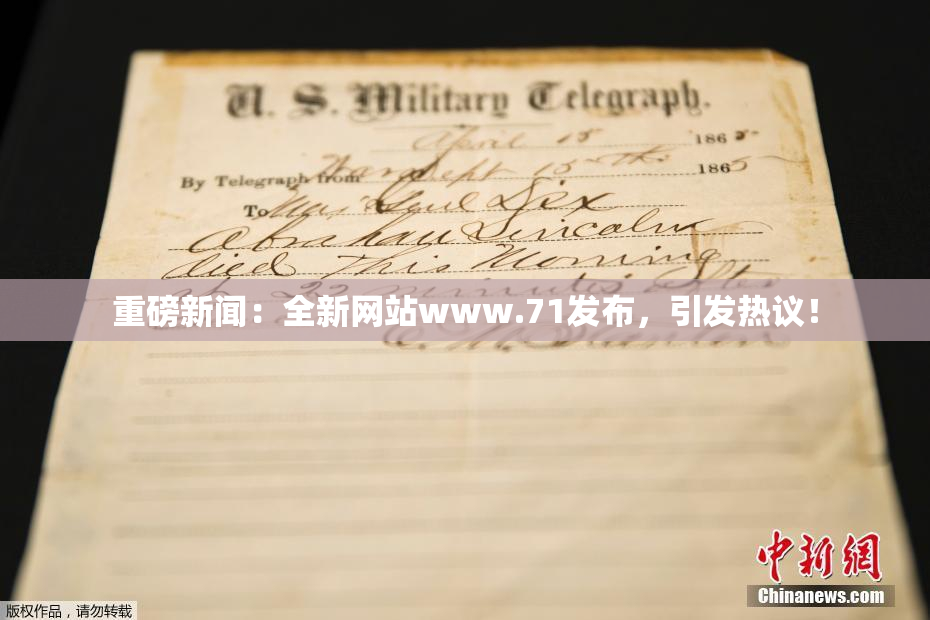 U. S. Military Telegraph.
April 15 1865
By Telegraph from War Dept 15th 1865
To Maj Genl Dix
Abraham Lincoln
died This Morning
at 22 minutes after
重磅新闻：全新网站www.71发布，引发热议！
E. M. Stanton
中新网
Chinanews.com
版权作品，请勿转载